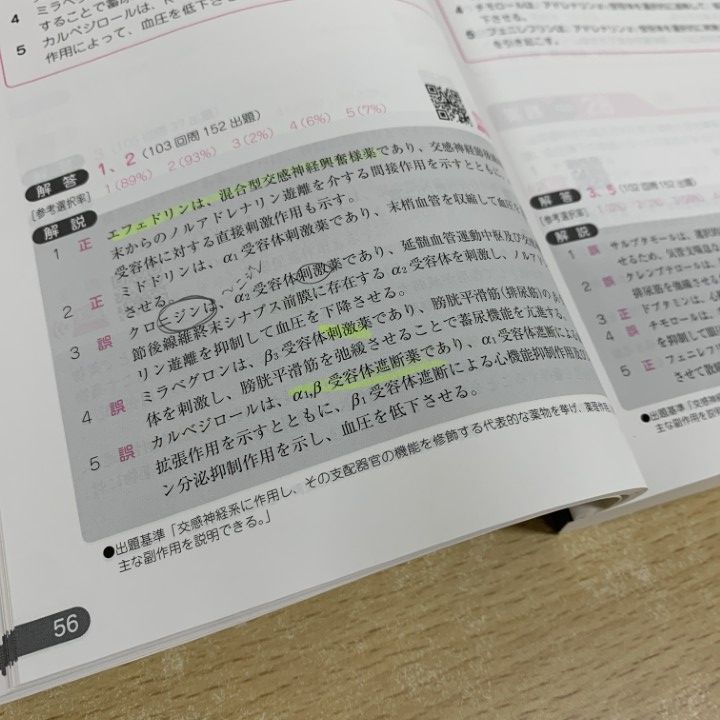 4
することで蓄尿
5 カルベジロールは、
作用によって、血圧を低下させ
解答
1、2（103回問152出題）
[参考選択率] 1（89%） 2（93%） 3（2%） 4（6%） 5（7%）
解説
1 正 エフェドリンは、混合型交感神経興奮様薬であり、交感神経節後線維
末からのノルアドレナリン遊離を介する間接作用を示すとともに、
受容体に対する直接刺激作用も示す。
2 正 ミドドリンは、α1受容体刺激薬であり、末梢血管を収縮して血圧
させる。
3 誤 クロニジンは、α2受容体刺激薬であり、延髄血管運動中枢及び
節後線維終末シナプス前膜に存在するα2受容体を刺激し、ノルア
リン遊離を抑制して血圧を下降させる。
4 誤 ミラベグロンは、β3受容体刺激薬であり、膀胱平滑筋（排尿筋）のβ
体を刺激し、膀胱平滑筋を弛緩させることで蓄尿機能を亢進する。
5 誤 カルベジロールは、α1,β受容体遮断薬であり、α1受容体遮断による
拡張作用を示すとともに、β1受容体遮断による心機能抑制作用及び
ン分泌抑制作用を示し、血圧を低下させる。
●出題基準「交感神経系に作用し、その支配器官の機能を修飾する代表的な薬物を挙げ、薬理作用
主な副作用を説明できる。」
56
4 チモロールは、アドレナリン
下させる。
5 フェニレフリンは、アドレナリン
を引き起こす。
解答
3、5（102回問152出題）
解説
1 誤 サルブタモールは、選択的
せるため、気管支喘息
2 誤 クレンブテロールは、選択
排尿筋を弛緩させ
3 正 ドブタミンは、心
4 誤 チモロールは、
を抑制して眼
5 正 フェニレフリ
させて散瞳
●出題基準「交感神経
主な副作用を説